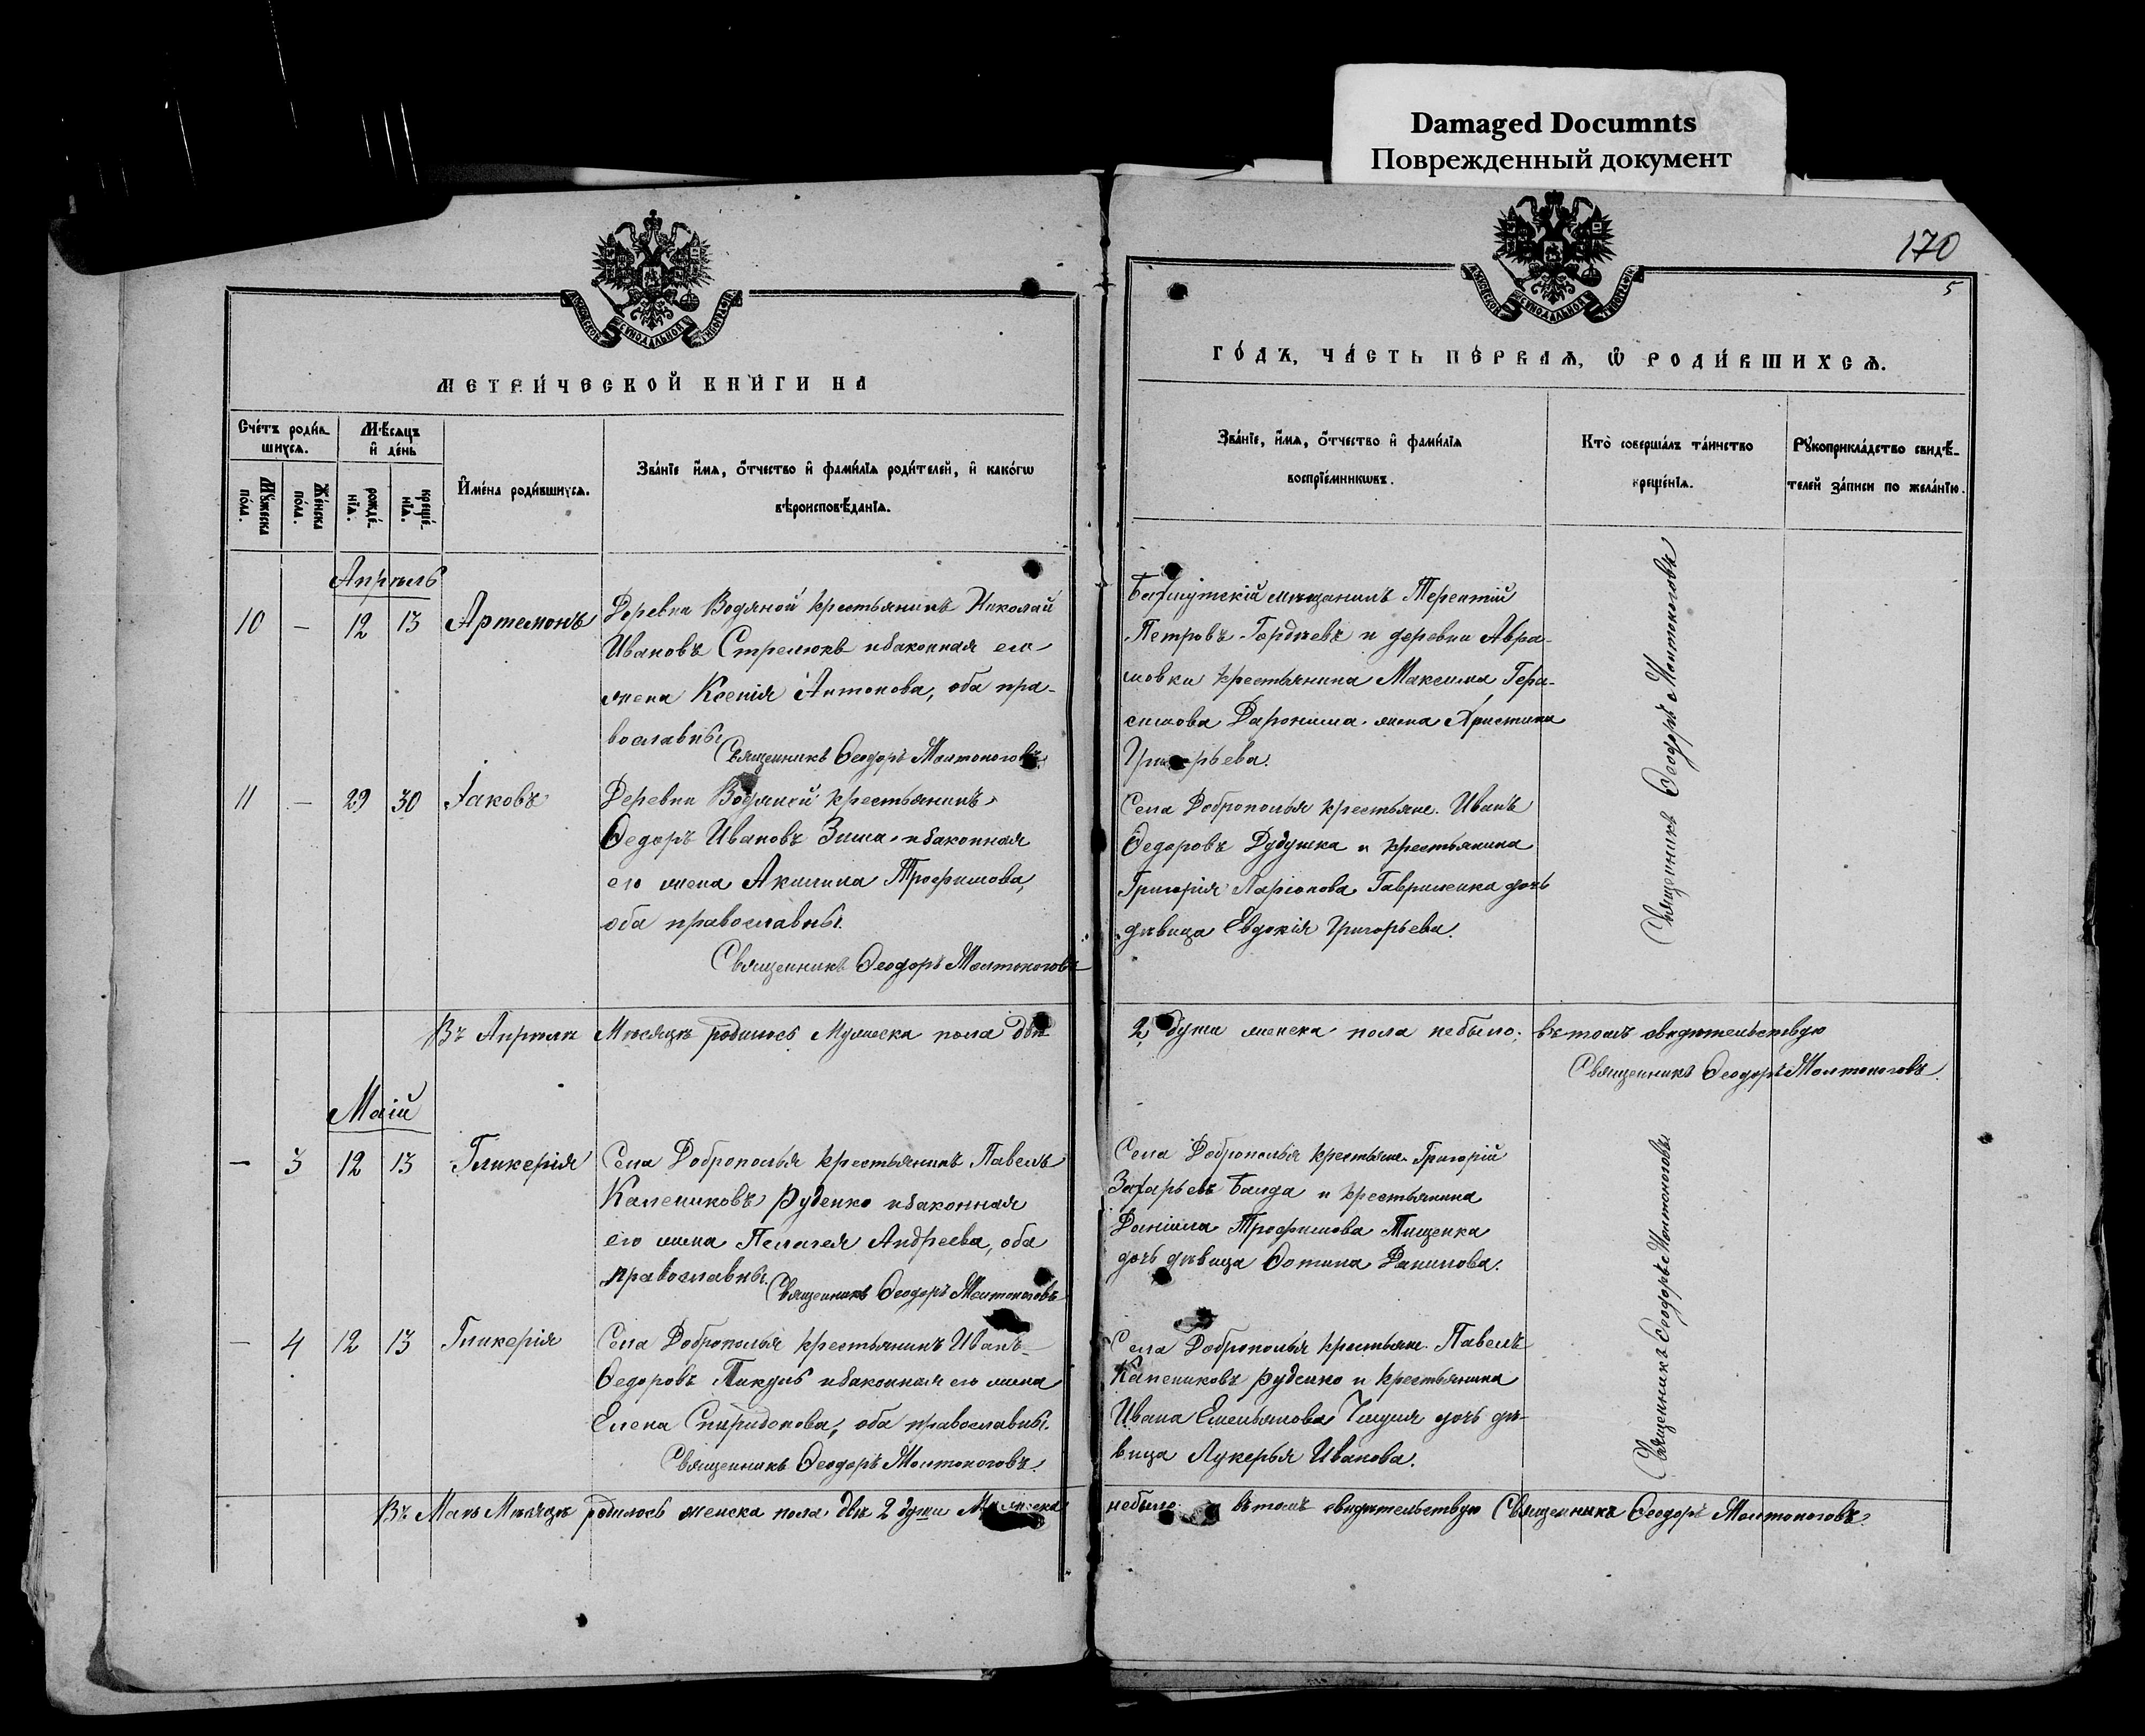 Damaged Documnts
Поврежденный документ
170
5
МЕТРИ́ЧЕСКОЙ КНИ́ГИ НА
ГО́ДЪ, ЧА́СТЬ ПЕ́РВАЯ, Ѡ҆ РОДИ́ВШИХСЯ.
Сче́тъ роди́в-
шихся.
Мѣ́сяцъ
и҆ де́нь
Мꙋ́жеска
пола.
Же́нска
по́ла.
рожде́-
нїѧ.
креще́-
нїѧ.
И҆мена̀ роди́вшихся.
Зва́нїе и҆́мя, о҆́тчество и҆ фами́лїя роди́телей, и҆ како́гѡ
вѣроисповѣ́данїя.
Зва́нїе, и҆́мя, о҆́тчество и҆ фами́лїя
воспрїе́мникѡвъ.
Кто̀ соверша́лъ та́инство
креще́нїя.
Рꙋкоприкла́дство свидѣ́-
телей за́писи по жела́нїю.
Апрѣль
10 — 12 13 Артемонъ
Деревни Водяной крестьянинъ Николай
Ивановъ Стрелюкъ и законная его
жена Ксенія Антонова, оба пра-
вославны.
Священникъ Ѳеодоръ Молтоноговъ
Бахмутскій мѣщанинъ Терентій
Петровъ Гордѣевъ и деревни Авра-
мовки крестьянина Максима Гера-
симова жена Христина
Григорьева.
Священникъ Ѳеодоръ Молтоноговъ
11 — 29 30 Іаковъ
Деревни Водяной крестьянинъ
Ѳедоръ Ивановъ Зима и законная
его жена Акилина Трофимова,
оба православны.
Священникъ Ѳеодоръ Молтоноговъ
Села Доброполья крестьяне. Иванъ
Ѳедоровъ Дудушка и крестьянина
Григорія Ларіонова Гавриленка дочь
дѣвица Евдокія Григорьева.
Въ Апрѣлѣ Мѣсяцѣ родилось Мужеска пола двѣ 2 души женска пола небыло; въ томъ свидѣтельствую
Священникъ Ѳеодоръ Молтоноговъ.
Маій
— 3 12 13 Гликерія
Села Доброполья крестьянинъ Павелъ
Калениковъ Руденко и законная
его жена Пелагея Андреева, оба
православны.
Священникъ Ѳеодоръ Молтоноговъ
Села Доброполья крестьяне. Григорій
Захарьевъ Балда и крестьянина
Даніила Трофимова Тищенка
дочь дѣвица Ѳотина Данилова.
Священникъ Ѳеодоръ Молтоноговъ
— 4 12 13 Гликерія
Села Доброполья крестьянинъ Иванъ
Ѳедоровъ Пикуль и законная его жена
Елена Спиридонова, оба православны.
Священникъ Ѳеодоръ Молтоноговъ.
Села Доброполья крестьяне. Павелъ
Калениковъ Руденко и крестьянина
Ивана Емельянова дочь дѣ-
вица Лукерья Иванова.
Въ Маѣ Мѣсяцѣ родилось женска пола двѣ 2 души Мужеска небыло въ томъ свидѣтельствую Священникъ Ѳеодоръ Молтоноговъ.